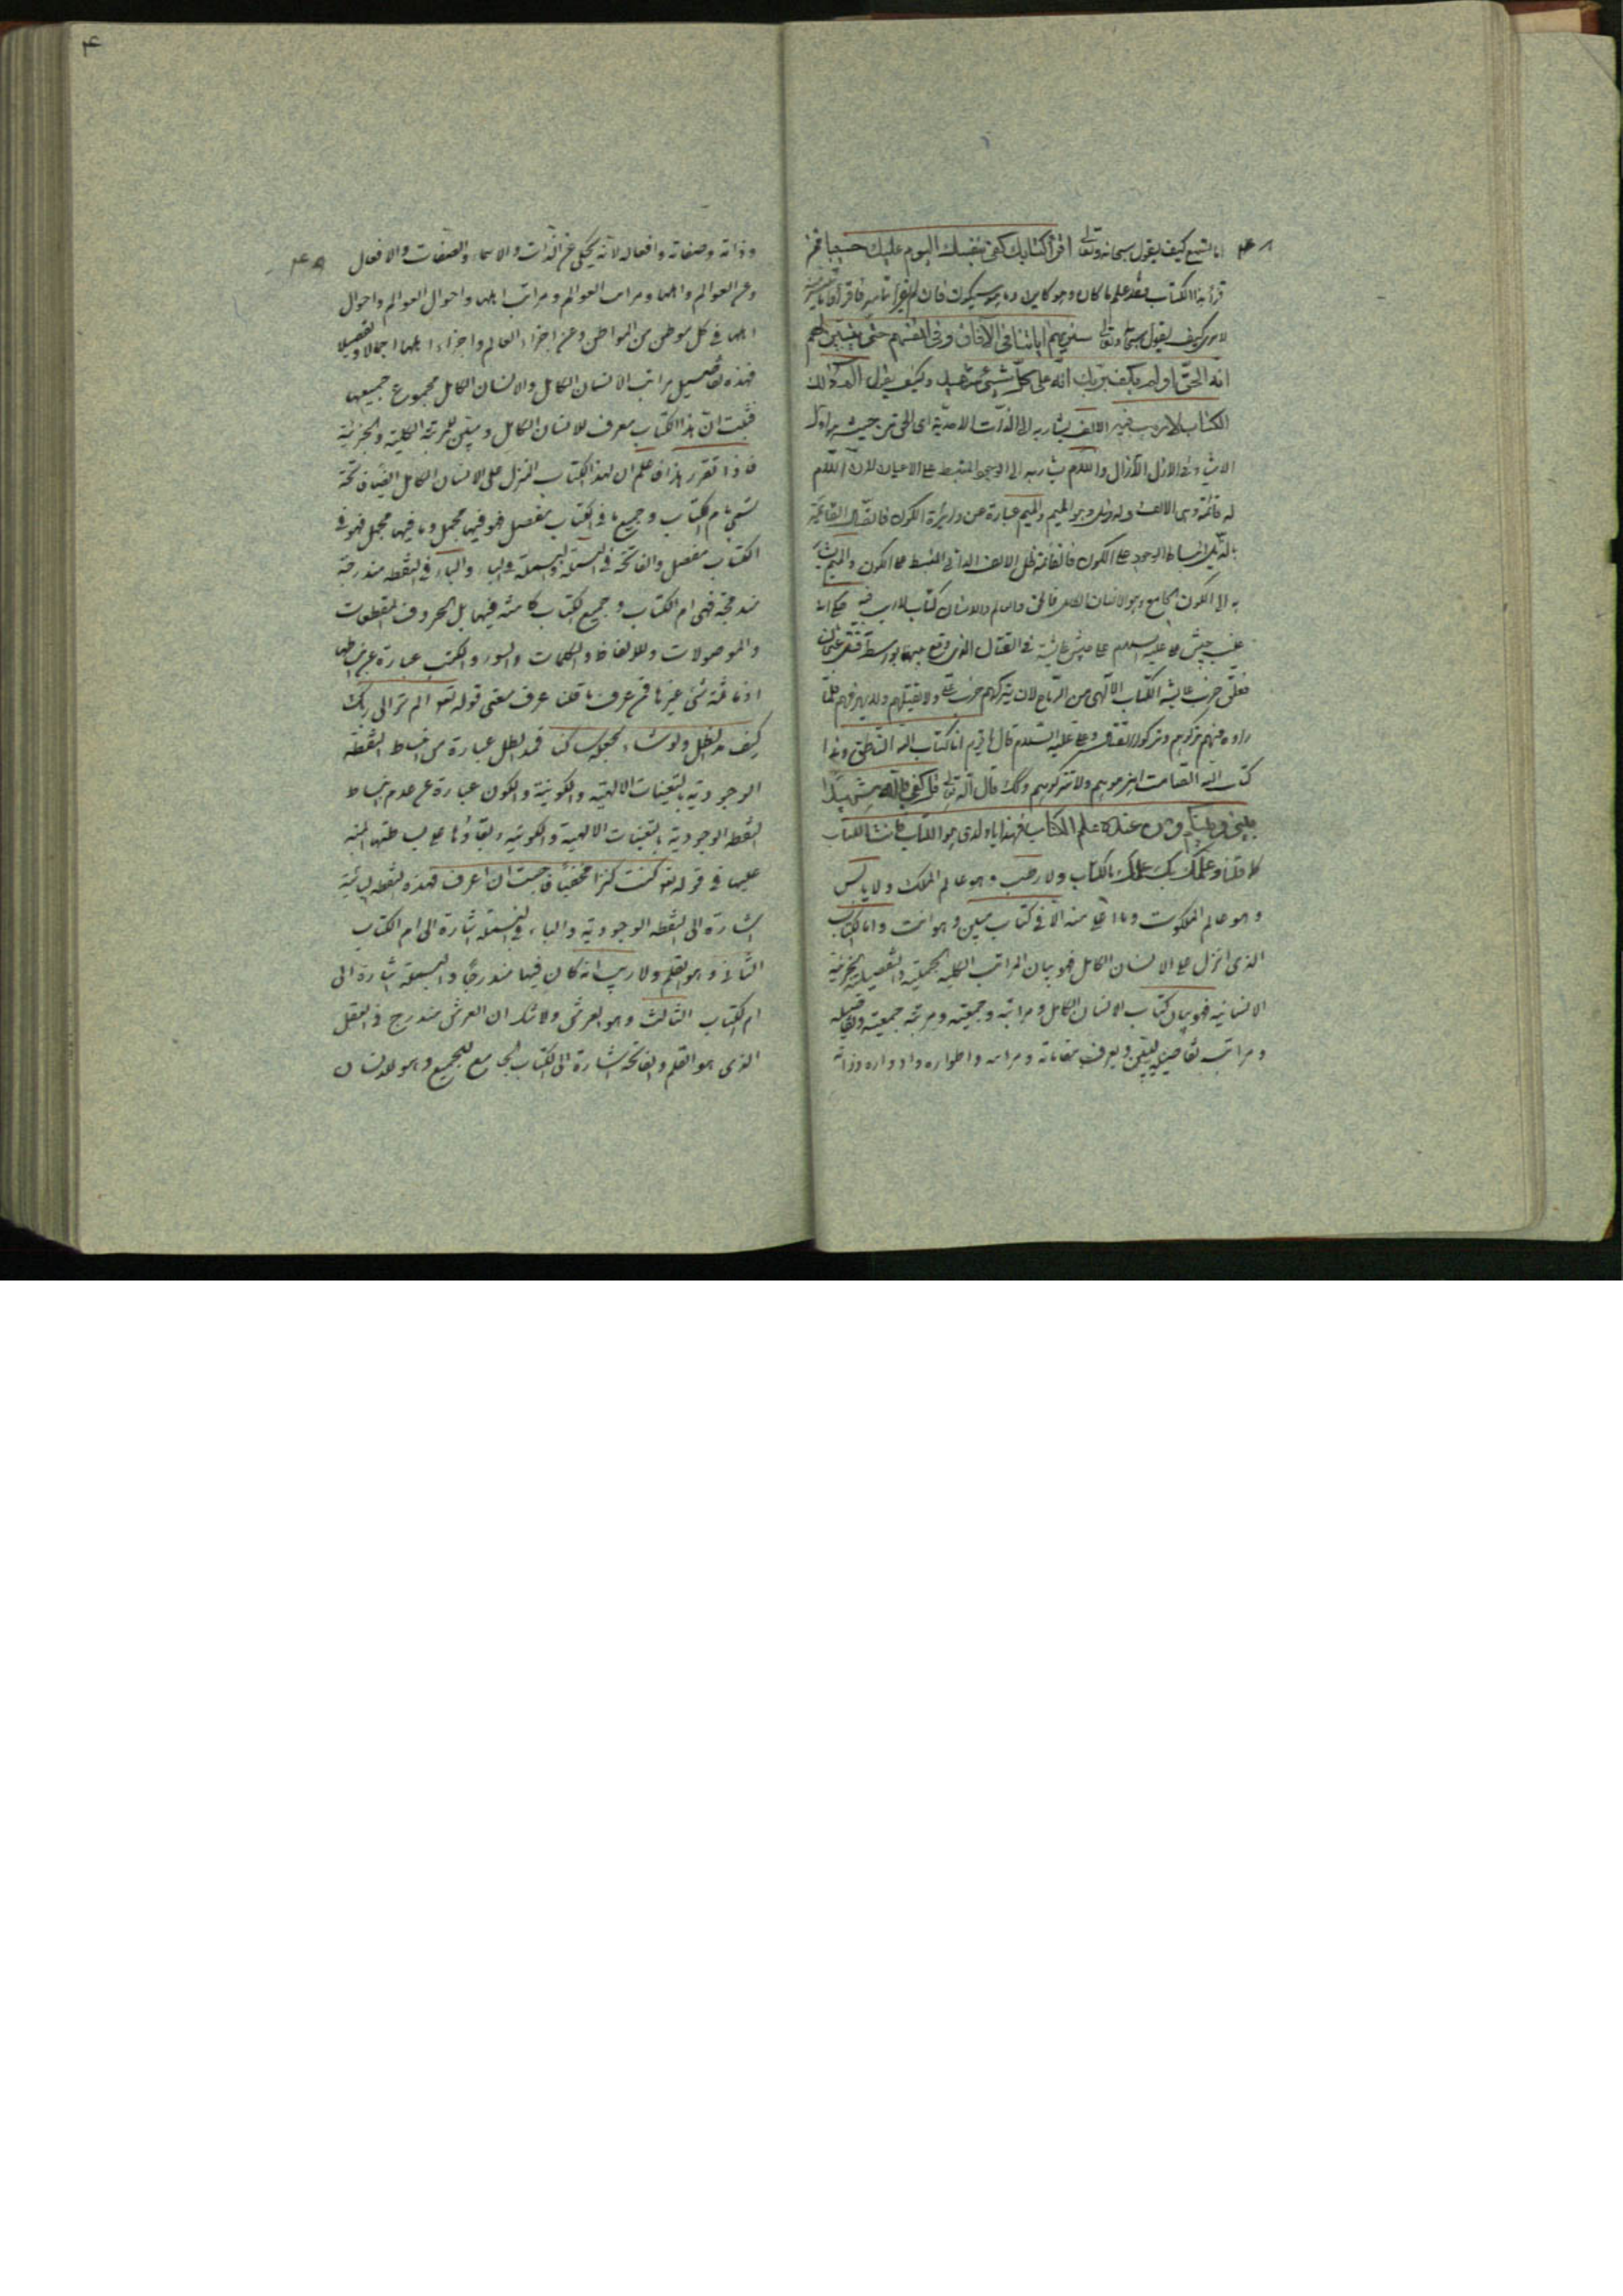 اما تسمع كيف يقول سبحانه وتعالى اقرأ كتابك كفى بنفسك اليوم عليك حسيبا فمن
قرأ هذا الكتاب فقد علم ما كان وهو كاين وما هو سيكون فان لم تقرأ تمامه فاقرأ ما تيسر منه
كيف يقول سبحانه وتعالى سنريهم آياتنا فى الآفاق وفى انفسهم حتى يتبين لهم
انه الحق اولم يكف بربك انه على كل شيئ شهيد وكيف يقول الم ذلك
الكتاب لاريب فيه الالف يشار به الى الذات الاحدية اى الحق من حيث هو اول
الاشياء فى ازل الآزال واللام يشار به الى الوجود المنبسط على الاعيان لان اللام
له قائمة وهى الالف وله ذيل وهو الميم والميم عبارة عن دائرة الكون فاتصال القائمة
بالذيل انبساط الوجود على الكون فالقائمة ظل الالف الذاتى المنبسط على الكون والميم يشار
به الى الكون الجامع وهو الانسان الكامل فالحق والعالم والانسان كتاب لاريب فيه حكى انه
غلب جيش على عليه السلم على جيش عائشة فى القتال الذى وقع بينهما بواسطة قتل عثمان
فعلق حزب عايشه الكتاب الالهى من الرماح لان يتركوهم حزب على ولا يقتلهم ولا يهزمهم فلما
راوه منهم تركوهم وتركوا القتال وعلى عليه السلام قال يا قوم انا كتاب الله الناطق وهذا
كتاب الله الصامت اهزموهم ولا تتركوهم ولذلك قال الله تعالى قل كفى بالله شهيدا
بينى وبينكم ومن عنده علم الكتاب فهذا يا ولدى هو الكتاب فانت الكتاب
كما قلنا وعلمك بك علمك بالكتاب ولا رطب وهو عالم الملك ولا يابس
وهو عالم الملكوت وما اعلى منه الا فى كتاب مبين وهو انت واما الكتاب
الذى انزل على الانسان الكامل فهو بيان المراتب الكلية الجملية والتفصيلية الجزئية
الانسانية فهو بيان كتاب الانسان الكامل ومراتبه وجمعيته ومرتبة جمعيته وتفاصيله
ومراتب تفاصيله ليتبين ويعرف مقاماته ومراتبه واطواره وادواره وذاته
وذاته وصفاته وافعاله لانه يحكى عن الذات والاسماء والصفات والافعال
وعن العوالم واهلها ومراتب العوالم ومراتب اهلها واحوال العوالم واحوال
اهلها فى كل موطن من المواطن وعن اجزاء العالم واجزاء اهلها اجمالا وتفصيلا
فهذه تفاصيل مراتب الانسان الكامل والانسان الكامل مجموع جميعها
فثبت ان هذا الكتاب معرف للانسان الكامل ومبين للمرتبة الكلية والجزئية
فاذا تقرر هذا فاعلم ان لهذا الكتاب المنزل على الانسان الكامل ايضا فاتحة
تسمى بام الكتاب وجميع ما فى الكتاب مفصل فهو فيها مجمل وما فيها مجمل فهو فى
الكتاب مفصل والفاتحة فى البسملة والبسملة فى الباء والباء فى النقطة مندرجة
مندمجة فهى ام الكتاب وجميع الكتاب كامنة فيها بل الحروف المقطعات
والموصولات والالفاظ والكلمات والسور والكتب عبارة عن بسطها
اذ ما ثمة شئ غيرها فمن عرف ما قلنا عرف معنى قوله تعو الم تر الى ربك
كيف مد الظل ولو شاء لجعله ساكنا فمد الظل عبارة من انبساط النقطة
الوجودية بالتعينات الالهية والكونية والكون عبارة عن عدم انبساط
النقطة الوجودية بالتعينات الالهية والكونية وبقاؤها على بساطتها المنبه
عليها فى قوله تعو كنت كنزا مخفيا فاحببت ان اعرف فهذه النقطة البائية
اشارة الى النقطة الوجودية والباء فى البسملة اشارة الى ام الكتاب
الثانى وهو القلم ولا ريب انه كان فيها مندرجا والبسملة اشارة الى
ام الكتاب الثالث وهو العرش ولا شك ان العرش مندرج فى العقل
الذى هو القلم والفاتحة اشارة الى الكتاب الجامع للجميع وهو الانسان